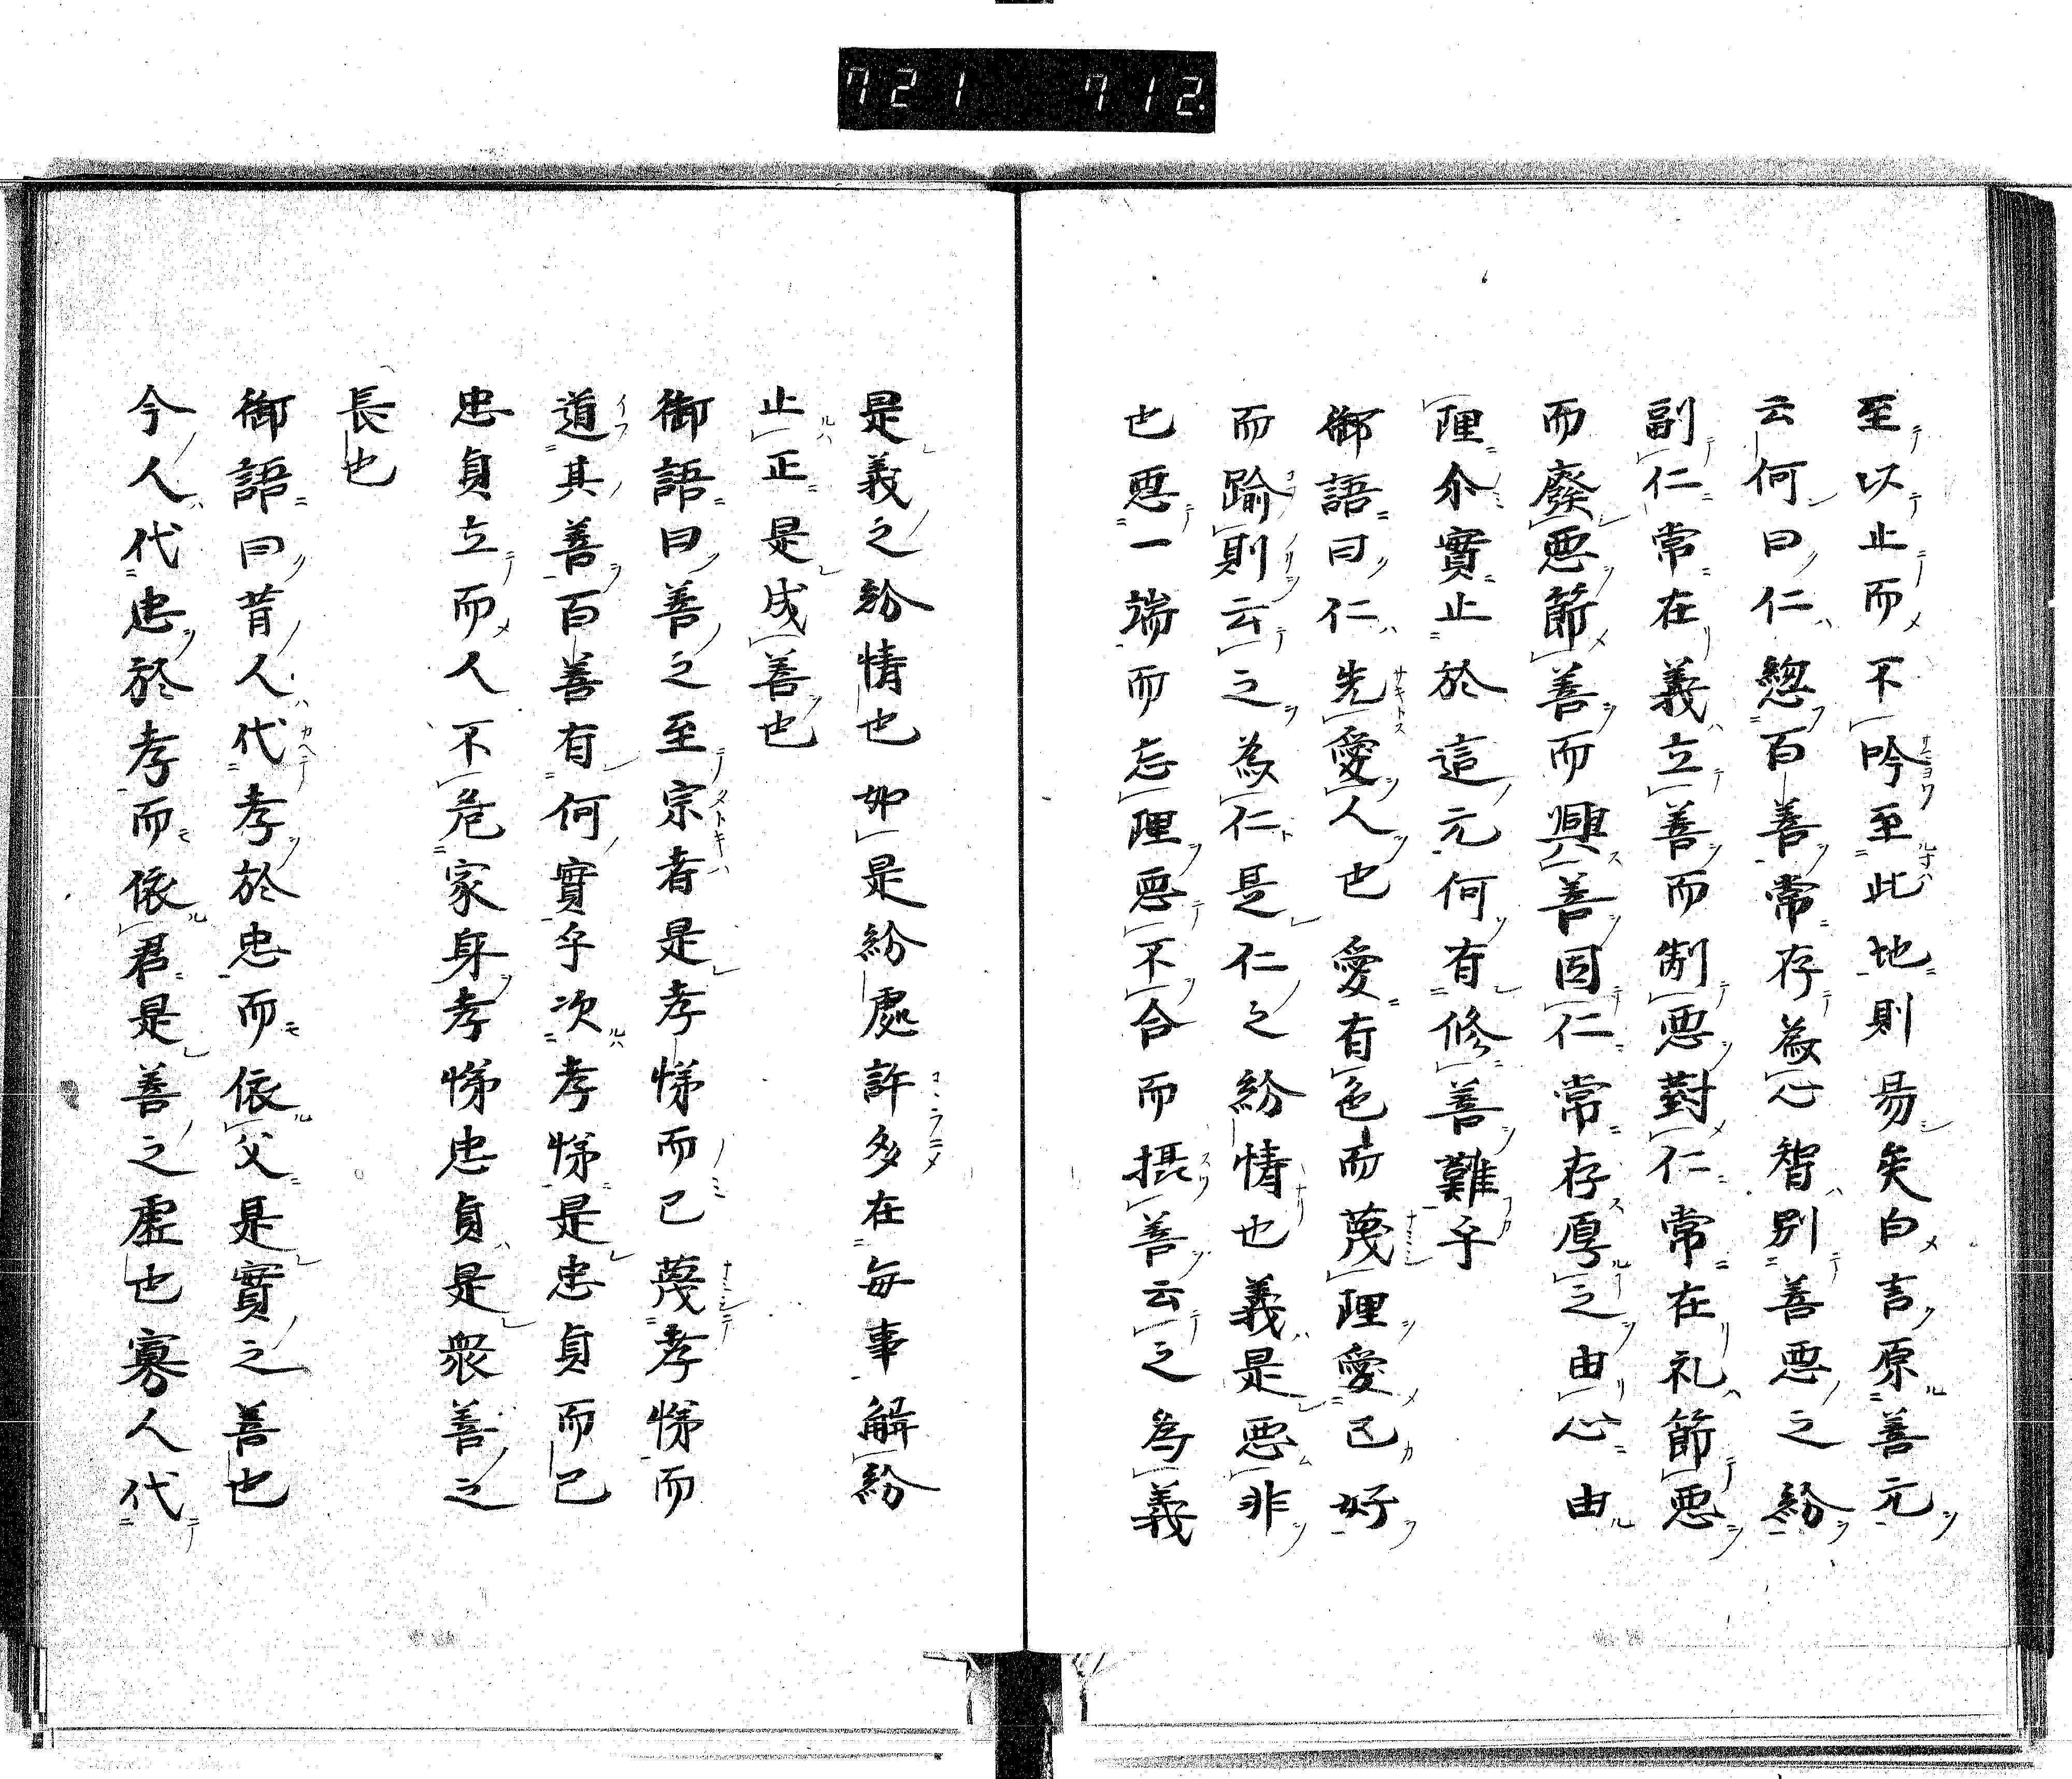 721 712.
至以止而不吟至此地則昜矣白吉原善元
云何曰仁惣百善常存為心智別善悪之紛
副仁常在義立善而制悪對仁常在礼節悪
而廢悪節善而興善因仁常存厚之由心由
理尒實止於這元何有修善難乎
御語曰仁先愛人也愛有色而蔑理愛己好
而踰則云之為仁是仁之紛情也義是悪非
也悪一端而忘理悪不合而摂善云之為義
是義之紛情也如是紛處許多在毎事解紛
止正是成善也
御語曰善之至宗者是孝悌而已蔑孝悌而
道其善百善有何實乎次孝悌是忠貞而已
忠貞立而人不危家身孝悌忠貞是衆善之
長也
御語曰昔人代孝於忠而依父是實之善也
今人代忠於孝而依君是善之虚也寡人代